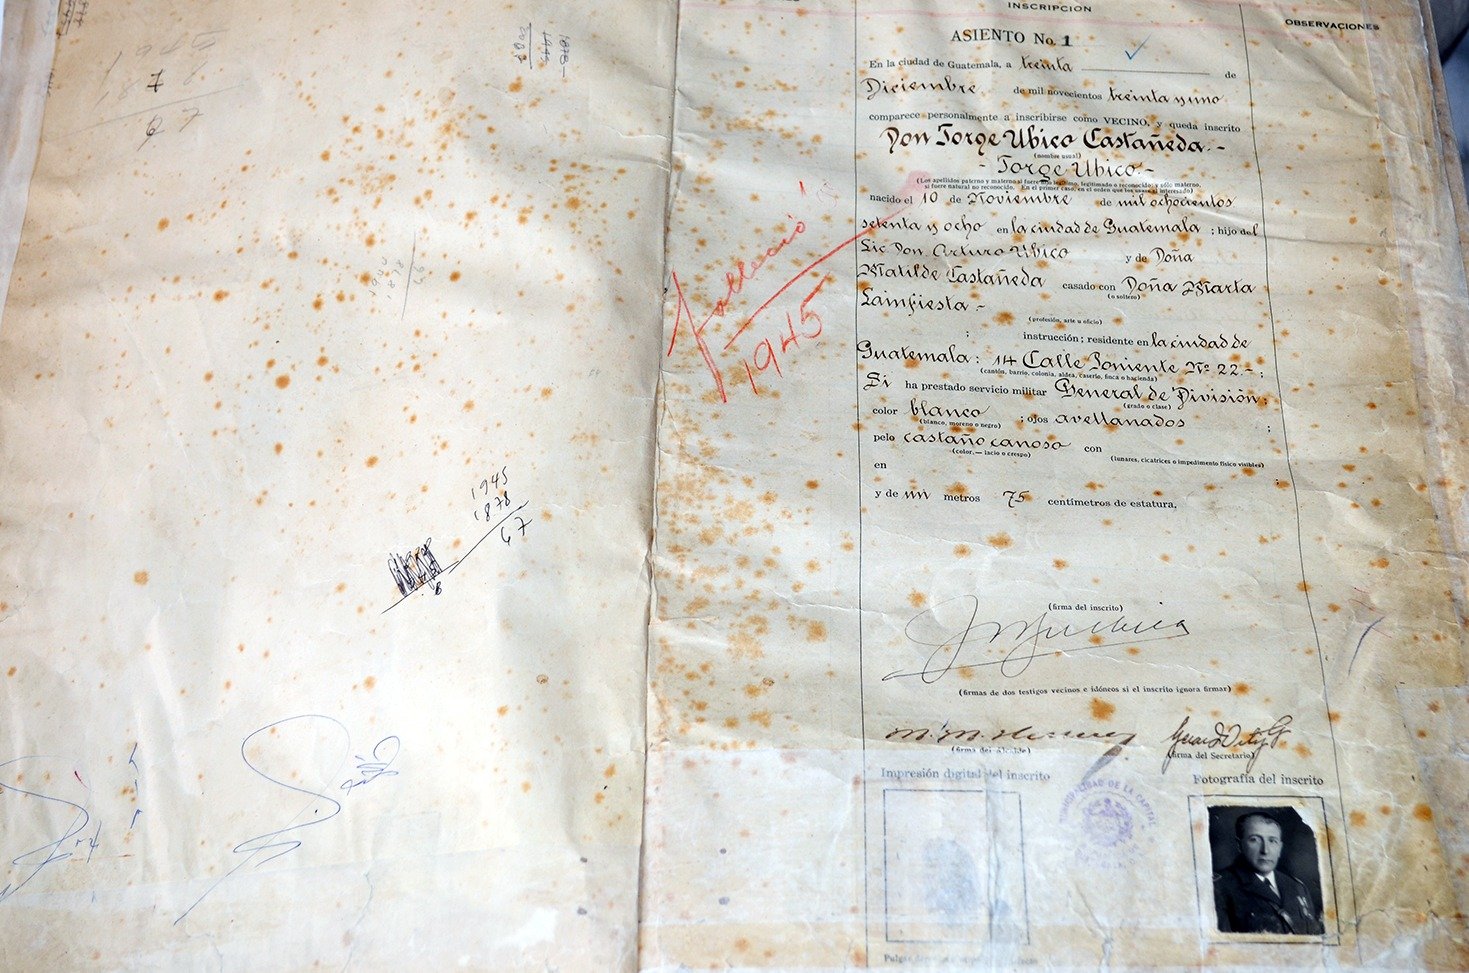 1945
1878
67
8
falleció
1945
INSCRIPCION
OBSERVACIONES
ASIENTO No. 1
En la ciudad de Guatemala, a treinta de
Diciembre de mil novecientos treinta y uno
comparece personalmente a inscribirse como VECINO, y queda inscrito
Don Jorge Ubico Castañeda.-
(nombre usual)
- Jorge Ubico.-
(Los apellidos paterno y materno si fuere legítimo, legitimado o reconocido; y sólo materno,
si fuere natural no reconocido. En el primer caso, en el orden que los usase el interesado)
nacido el 10 de Noviembre de mil ochocientos
setenta y ocho en la ciudad de Guatemala; hijo del
Lic Don Arturo Ubico y de Doña
Matilde Castañeda casado con Doña Marta
(o soltero)
Lainfiesta.-
(profesión, arte u oficio)
; instrucción; residente en la ciudad de
Guatemala: 14 Calle Poniente Nº 22.-;
(cantón, barrio, colonia, aldea, caserío, finca o hacienda)
Si ha prestado servicio militar General de División;
(grado o clase)
color blanco ; ojos avellanados ;
(blanco, moreno o negro)
pelo castaño canoso con
(color.—lacio o crespo) (lunares, cicatrices o impedimento físico visibles)
en ;
y de un metros 75 centímetros de estatura.
(firma del inscrito)
(firmas de dos testigos vecinos e idóneos si el inscrito ignora firmar)
(firma del Alcalde) (firma del Secretario)
Impresión digital del inscrito Fotografía del inscrito
MUNICIPALIDAD DE LA CAPITAL